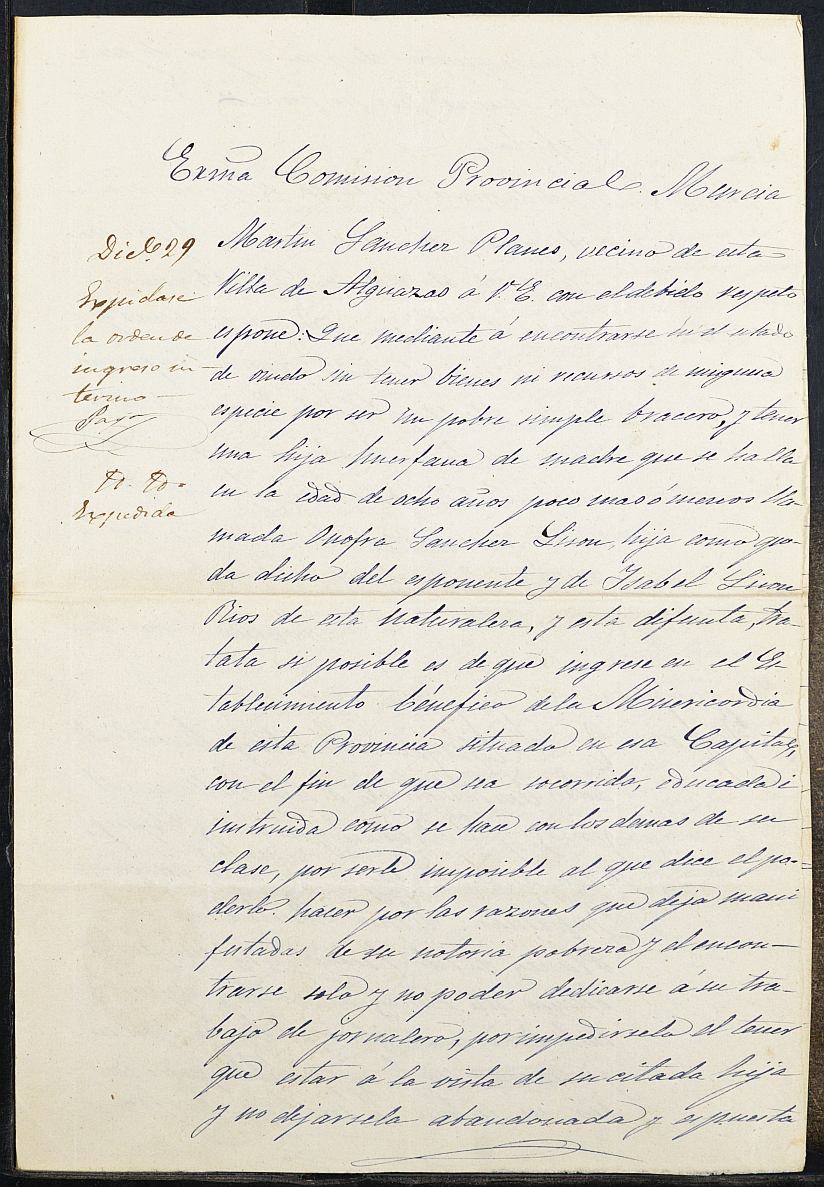 Exma Comision Provincial. Murcia
Dice. 29
Expidase
la orden de
ingreso in-
terino
Expedida
Martin Sanchez Planes, vecino de esta
Villa de Alguazas á V. E. con el debido respeto
espone: Que mediante á encontrarse en el estado
de viudo sin tener bienes ni recursos de ninguna
especie por ser un pobre simple bracero, y tener
una hija huerfana de madre que se halla
en la edad de ocho años poco mas ó menos lla-
mada Onofra Sanchez Lison, hija como que-
da dicho del esponente y de Isabel Lison
Rios de esta naturaleza, y esta difunta, tra-
tata si posible es de que ingrese en el Es-
tablecimiento benéfico de la Misericordia
de esta Provincia situado en esa Capital,
con el fin de que sea socorrida, educada é
instruida como se hace con los demas de su
clase, por serle imposible al que dice el po-
derlo hacer por las razones que deja mani
festadas de su notoria pobreza y el encon-
trarse solo y no poder dedicarse á su tra-
bajo de jornalero, por impedirselo el tener
que estar á la vista de su citada hija
y no dejarsela abandonada y espuesta